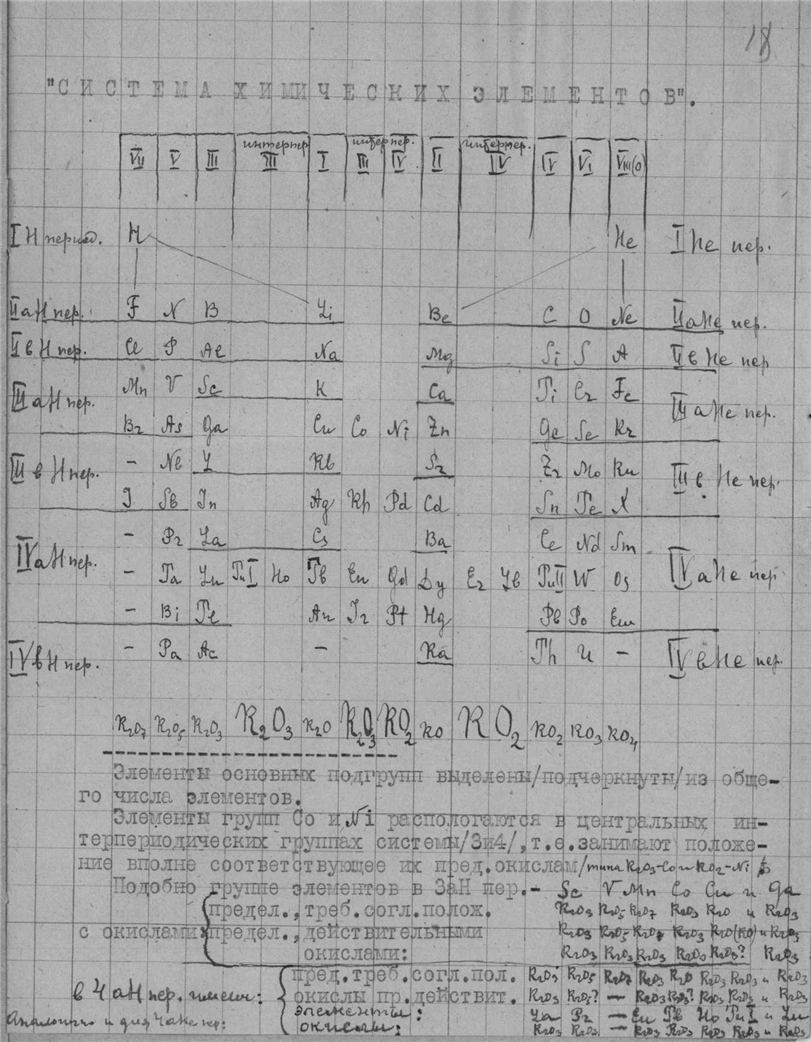 18
"СИСТЕМА ХИМИЧЕСКИХ ЭЛЕМЕНТОВ".
интерпер интерпер. интерпер.
VII V III III I III IV II IV IV VI VIII(0)
I H период. H He I He пер.
II a H пер. F N B Li Be C O Ne II a He пер.
II в H пер. Cl P Al Na Mg Si S A II в He пер
III a H пер. Mn V Sc K Ca Ti Cr Fe III a He пер.
Br As Ga Cu Co Ni Zn Ge Se Kr
III в H пер. - Nb Y Rb Sr Zr Mo Ru III в He пер.
J Sb In Ag Rh Pd Cd Sn Te X
IV a H пер. - Pr La Cs Ba Ce Nd Sm IV a He пер
- Ta Lu Tu I Ho Tb Eu Gd Dy Er Yb Tu II W Os
- Bi Te Au Ir Pt Hg Pb Po Em
IV в H пер. - Pa Ac - Ra Th U - IV в He пер.
R2O7 R2O5 R2O3 R2O3 R2O R2O3 RO2 RO RO2 RO2 RO3 RO4
Элементы основных подгрупп выделены/подчеркнуты/из обще-
го числа элементов.
Элементы групп Co и Ni распологаются в центральных ин-
терпериодических группах системы/3и4/,т.е.занимают положе-
ние вполне соответствующее их пред.окислам/типа R2O3-Co и RO2-Ni/
Подобно группе элементов в 3аН пер.- Sc V Mn Co Cu и Ga
предел.,треб.согл.полож. R2O3 R2O5 R2O7 R2O3 R2O и R2O3
с окислами предел.,действительными R2O3 R2O5 R2O7 R2O3 и R2O3
окислами: R2O3 R2O3 R2O3 R2O3 R2O3? R2O3
пред.треб.согл.пол. R2O3 R2O5 R2O7 R2O3 R2O R2O3 R2O3 и R2O3
в 4аН пер. имеем: окислы пр.действит. R2O3 R2O5? — R2O3 R2O3? R2O3 R2O3 и R2O3
элементы: La Pr — Eu Tb Ho Tu I и Lu
Аналогично и для 4аНе пер: окислы: R2O3 R2O3 — R2O3 R2O3 R2O3 R2O3 и R2O3